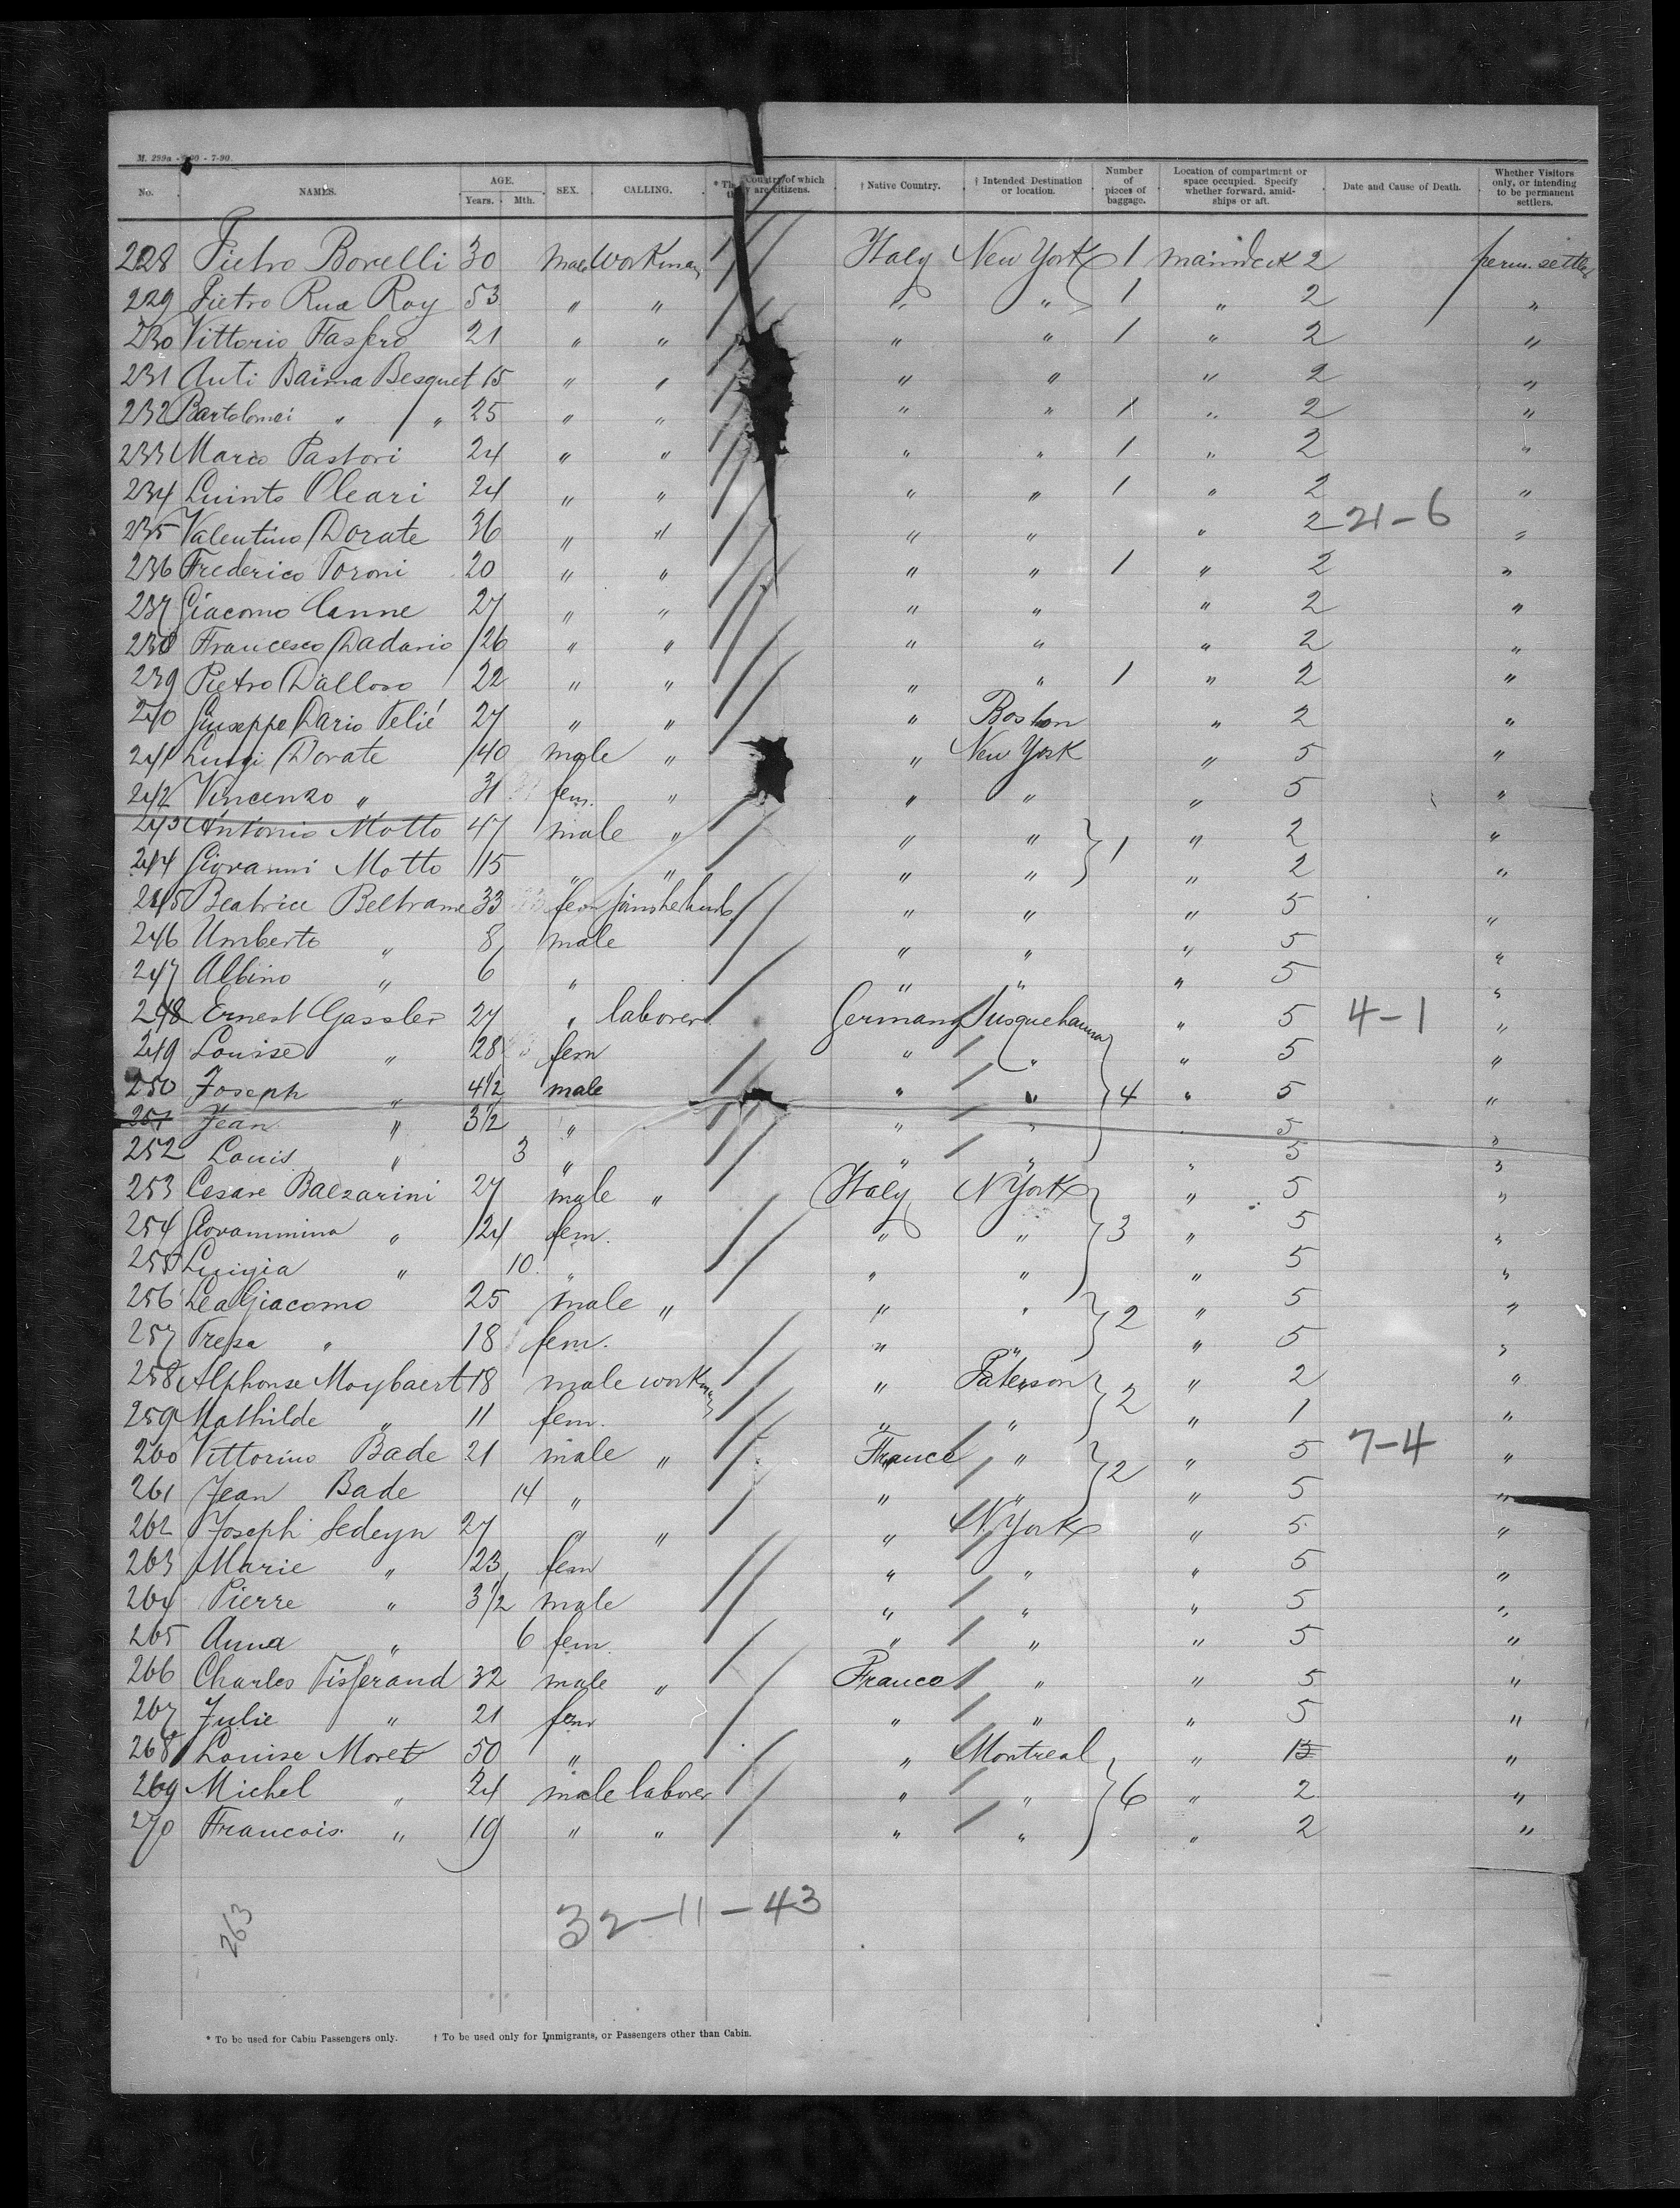 M. 299a - 7-90.
No. NAMES. AGE. Years. Mth. SEX. CALLING. * The Country of which they are citizens. † Native Country. † Intended Destination or location. Number of pieces of baggage. Location of compartment or space occupied. Specify whether forward, amidships or aft. Date and Cause of Death. Whether Visitors only, or intending to be permanent settlers.
228 Pietro Borelli 30 male workman Italy New York 1 maindeck 2 perm. settler
229 Pietro Rua Roy 53 " " " " 1 " 2 "
230 Vittorio Fassero 21 " " " " 1 " 2 "
231 Anti Baima Besquet 15 " " " " " 2 "
232 Bartolomei " " 25 " " " " 1 " 2 "
233 Marco Pastori 24 " " " " 1 " 2 "
234 Quinto Oleari 24 " " " " 1 " 2 "
235 Valentino Dorate 36 " " " " " 2 21-6 "
236 Frederico Toroni 20 " " " " 1 " 2 "
237 Giacomo Canne 27 " " " " " 2 "
238 Francesco Dadario 26 " " " " " 2 "
239 Pietro Dalloso 22 " " " " 1 " 2 "
240 Giuseppe Dario Felié 27 " " " Boston " 2 "
241 Luigi Dorate 40 male " " New York " 5 "
242 Vincenzo " 31 fem. " " " " 5 "
243 Antonio Motto 47 male " " " 1 " 2 "
244 Giovanni Motto 15 " " " " " 2 "
245 Beatrice Beltrame 33 fem joins her husb " " " 5 "
246 Umberto " 8 male " " " 5 "
247 Albino " 6 " " " " 5 "
248 Ernest Gassler 27 " laborer Germany Susquehanna " 5 4-1 "
249 Louise " 28 fem " " " 5 "
250 Joseph " 4 1/2 male " " 4 " 5 "
251 Jean " 3 1/2 " " " 5 "
252 Louis " 3 " " " " 5 "
253 Cesare Balzarini 27 male " Italy N York " 5 "
254 Giovannina " 24 fem. " " 3 " 5 "
255 Luigia " 10 " " " " 5 "
256 Lea Giacomo 25 male " " " 2 " 5 "
257 Tresa " 18 fem. " " " 5 "
258 Alphonse Moybaert 18 male workman " Paterson 2 " 2 "
259 Mathilde " 11 fem. " " " 1 "
260 Vittorino Bade 21 male " France " 2 " 5 7-4 "
261 Jean Bade 14 " " " " 5 "
262 Joseph Sedeyn 27 " " " N. York " 5 "
263 Marie " 23 fem " " " 5 "
264 Pierre " 3 1/2 male " " " 5 "
265 Anna " 6 fem " " " 5 "
266 Charles Tisserand 32 male " France " " 5 "
267 Julie " 21 fem " " " 5 "
268 Louise Moret 50 " " Montreal " "
269 Michel " 24 male laborer " " 6 " 2 "
270 Francois " 19 " " " " " 2 "
263
32-11-43
* To be used for Cabin Passengers only. † To be used only for Immigrants, or Passengers other than Cabin.